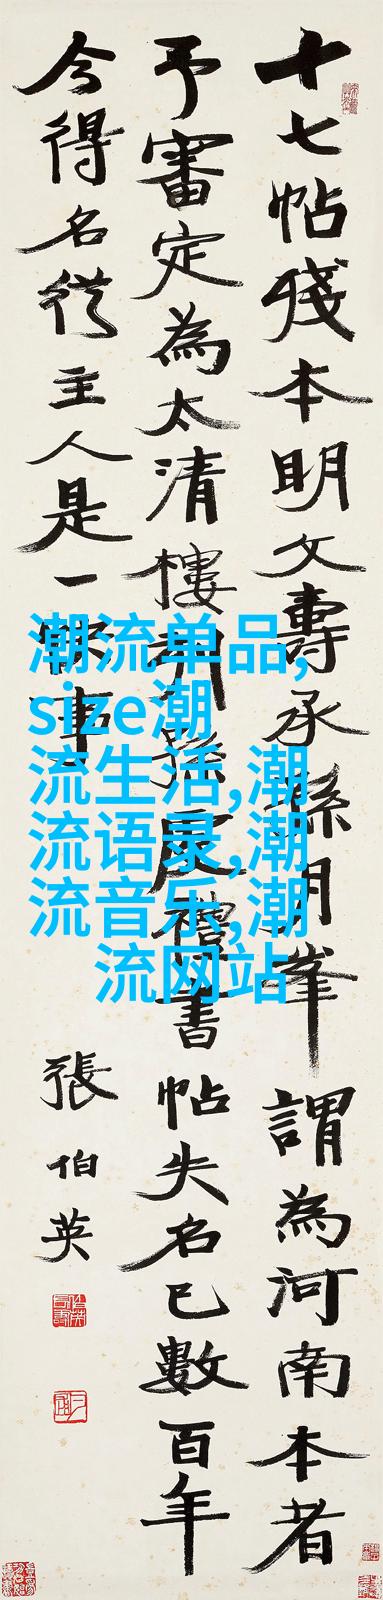 十七帖殘本明文壽承孫月峯謂為河南本者
予審定為太清樓孫虔禮書帖失名已數百年
今得名從主人是一快事
張伯英
潮流单品,
size潮
流生活,潮
流语录,潮
流音乐,潮
流网站